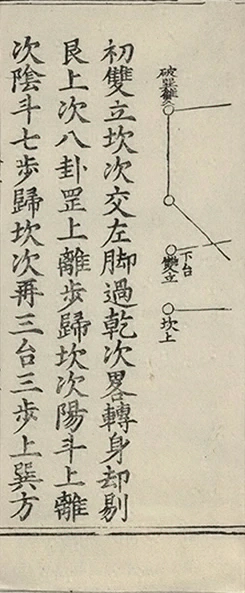 破巽離
下台
雙立
坎上
初雙立坎次交左脚過乾次畧轉身却剔
艮上次八卦罡上離步歸坎次陽斗上離
次陰斗七步歸坎次再三台三步上巽方